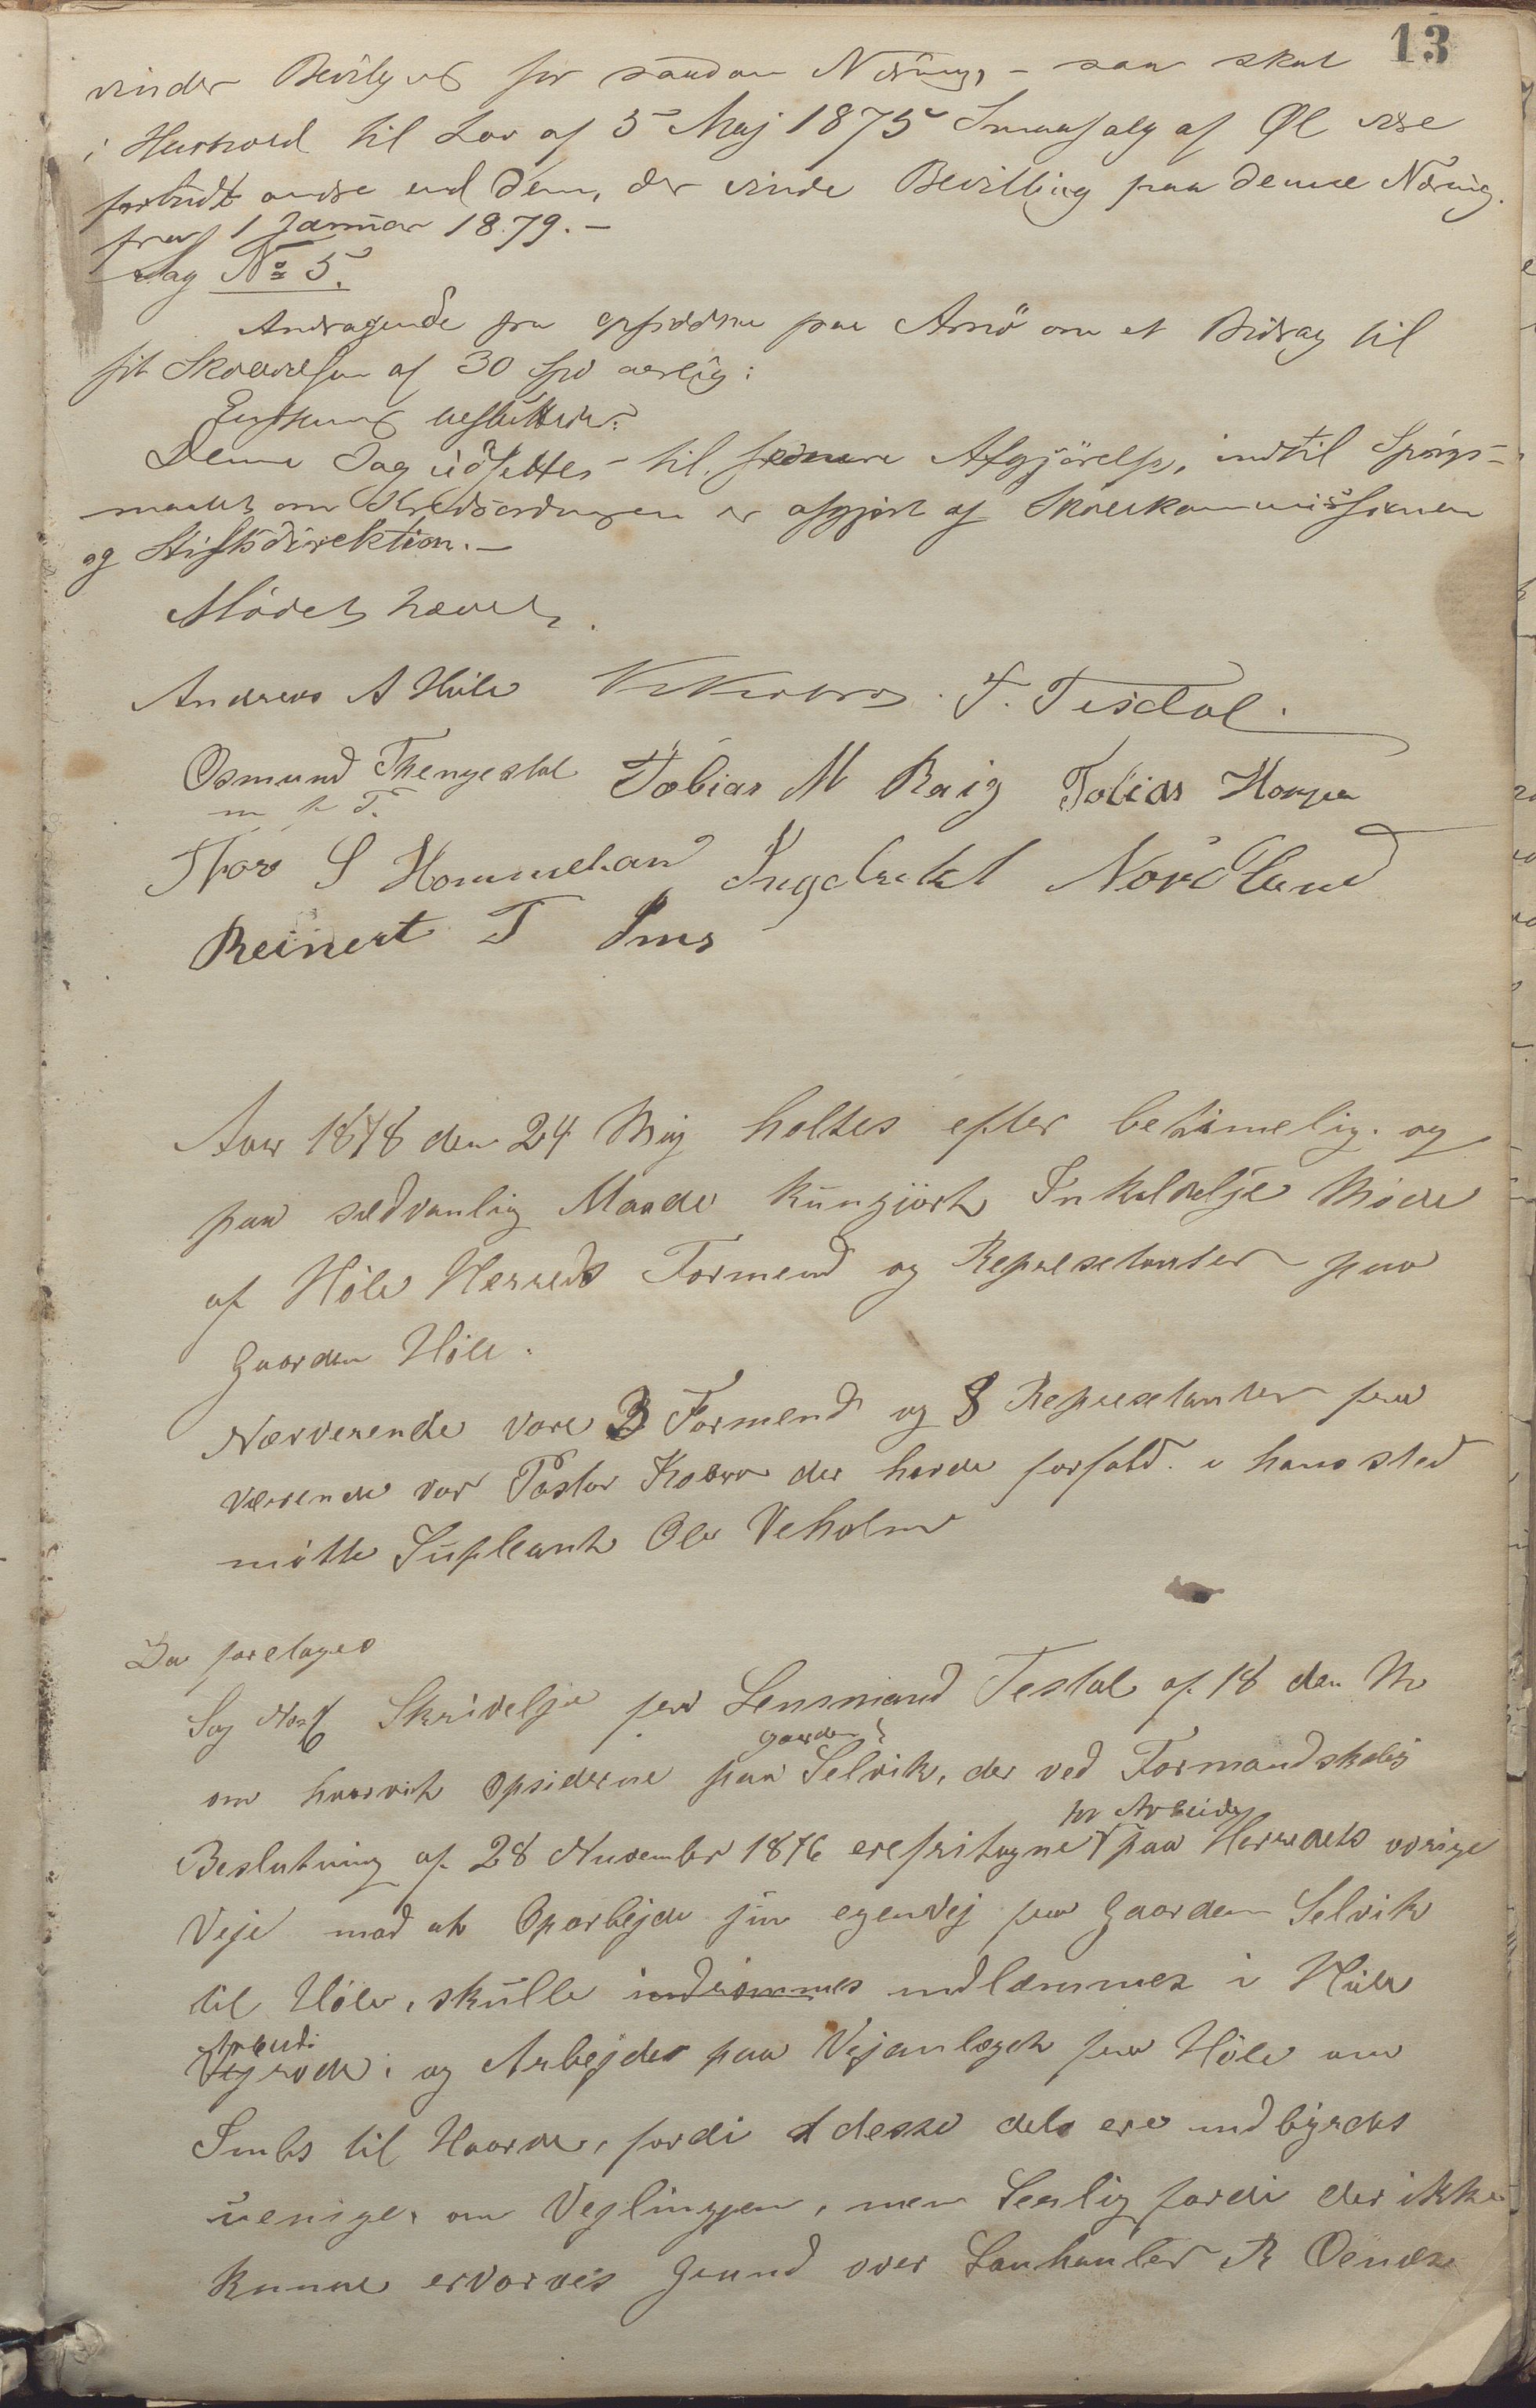 13
vinder Bevilgning for saadan Næring, – saa skal
i Henhold til Lov af 5 Maj 1875 Smaasalg af Øl være
forbudt andre end dem, der vinde Bevilling paa denne Næring
fra 1 Januar 1879. –
Sag No 5.
Andragende fra opsidderne paa Arnö om et Bidrag til
sit Skolevæsen af 30 Spd aarlig:
Enstemmig besluttedes:
Denne Sag udsættes til senere Afgjörelse, indtil Spörgs-
maalet om Kredsordningen er afgjort af Skolekommissionen
og Stiftsdirektion. –
Mödet hævet.
Andreas A Høle F. Tisdal.
Osmund Thengesdal Tobias M Raig Tobias Hompa
m p T.
Thore S Hommeland Ingebrekt Nordland
Reinert T Ims
Aar 1878 den 24 Maj holtes efter betimelig og
paa sædvanlig Maade kungjort Inkaldelse Møde
af Höle Herreds Formend og Represetanter paa
Gaarden Höle.
Nærverende vare 3 Formend og 8 Represetanter fra
værende var Pastor Koren der havde forfald. i hans sted
mötte Supleant Ole Veholm
Da foretoges
Sag No 1 Skrivelse fra Lensmand Tesdal af 18 den M
gaarden
om hvorvit Opsiderne paa Selvik, der ved Formandskabs
for Arbeide
Beslutning af 28 November 1876 ere fritagne paa Herredets ovrige
Veje mod at Oparbejde sin egen Vej fra Gaarden Selvik
til Höle, skulle indrömmes indlemmes i Höle
Arbeids
Vejrode. og Arbejder paa Vejanlæget fra Höle om
Imbs til Haarve, fordi disse dels ere indbyrdes
uenige om Vejlinjen, men Serlig fordi der ikke
kunne ervorves Grund over Lanhanler R